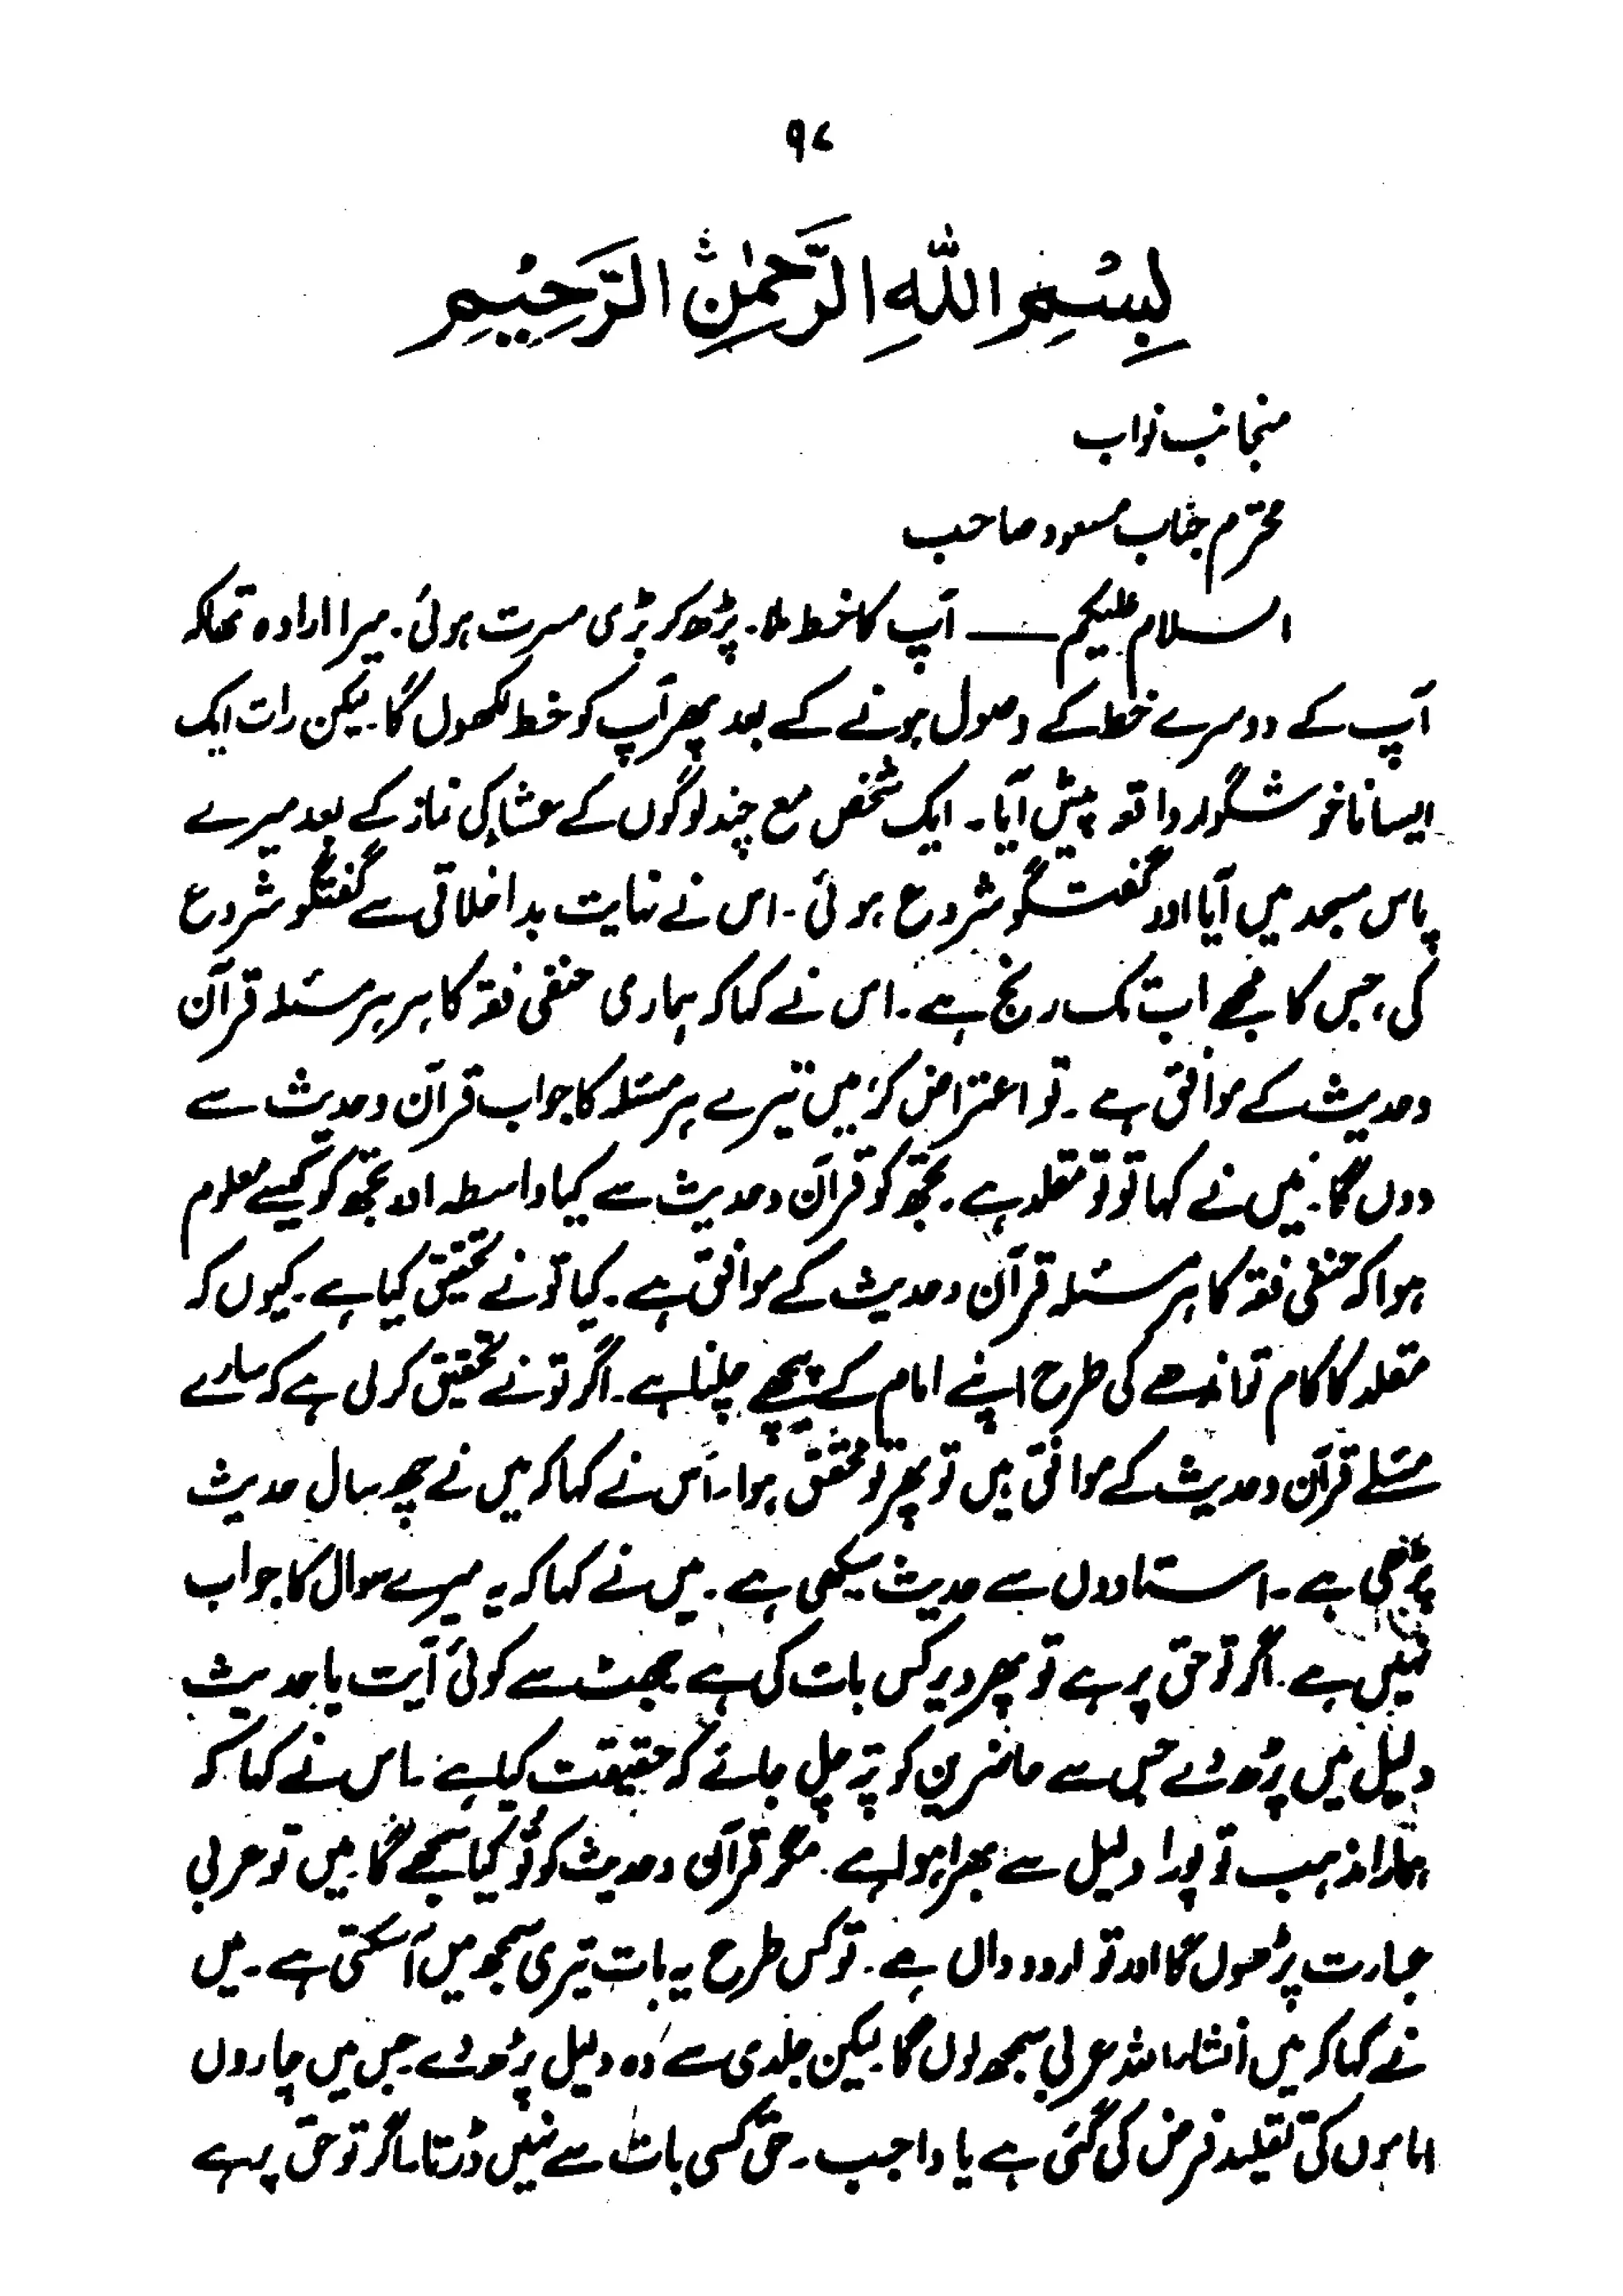 ۹۷
بِسْمِ اللّٰهِ الرَّحْمٰنِ الرَّحِيْمِ
منجانب نواب
محترم جناب مسعود صاحب
السلام علیکم ــــ آپ کا خط ملا۔ پڑھ کر بڑی مسرت ہوئی۔ میرا ارادہ تھا کہ
آپ کے دوسرے خط کے وصول ہونے کے بعد پھر آپ کو خط لکھوں گا۔ لیکن رات ایک
ایسا ناخوشگوار واقعہ پیش آیا۔ ایک شخص مع چند لوگوں کے عشاء کی نماز کے بعد میرے
پاس مسجد میں آیا اور گفتگو شروع ہوئی۔ اس نے نہایت بداخلاقی سے گفتگو شروع
کی، جس کا مجھے اب تک رنج ہے۔ اس نے کہا کہ ہماری حنفی فقہ کا ہر ہر مسئلہ قرآن
و حدیث کے موافق ہے۔ تو اعتراض کر، میں تیرے ہر مسئلہ کا جواب قرآن و حدیث سے
دوں گا۔ میں نے کہا تو تو مقلد ہے۔ تجھ کو قرآن و حدیث سے کیا واسطہ اور تجھ کو کیسے معلوم
ہوا کہ حنفی فقہ کا ہر مسئلہ قرآن و حدیث کے موافق ہے۔ کیا تو نے تحقیق کیا ہے۔ کیوں کہ
مقلد کا کام تو اندھے کی طرح اپنے امام کے پیچھے چلنا ہے۔ اگر تو نے تحقیق کر لی ہے کہ سارے
مسئلے قرآن و حدیث کے موافق ہیں تو پھر تو محقق ہوا۔ اُس نے کہا کہ میں نے چھ سال حدیث
پڑھی ہے۔ استادوں سے حدیث سیکھی ہے۔ میں نے کہا کہ یہ میرے سوال کا جواب
نہیں ہے۔ اگر تو حق پر ہے تو پھر دیر کس بات کی ہے جھٹ سے کوئی آیت یا حدیث
دلیل میں پڑھ دے جس سے حاضرین کو پتہ چل جائے کہ حقیقت کیا ہے۔ اس نے کہا کہ
ہمارا مذہب تو پورا دلیل سے بھرا ہوا ہے۔ مگر قرآن و حدیث کو تُو کیا سمجھے گا۔ میں تو عربی
عبارت پڑھوں گا اور تو اردو داں ہے۔ تو کس طرح یہ بات تیری سمجھ میں آسکتی ہے۔ میں
نے کہا کہ میں انشاء اللہ عربی سمجھ لوں گا۔ لیکن جلدی سے وہ دلیل پڑھ دے جس میں چاروں
اماموں کی تقلید فرض کی گئی ہے یا واجب۔ حق کسی بات سے نہیں ڈرتا۔ اگر تو حق پہ ہے